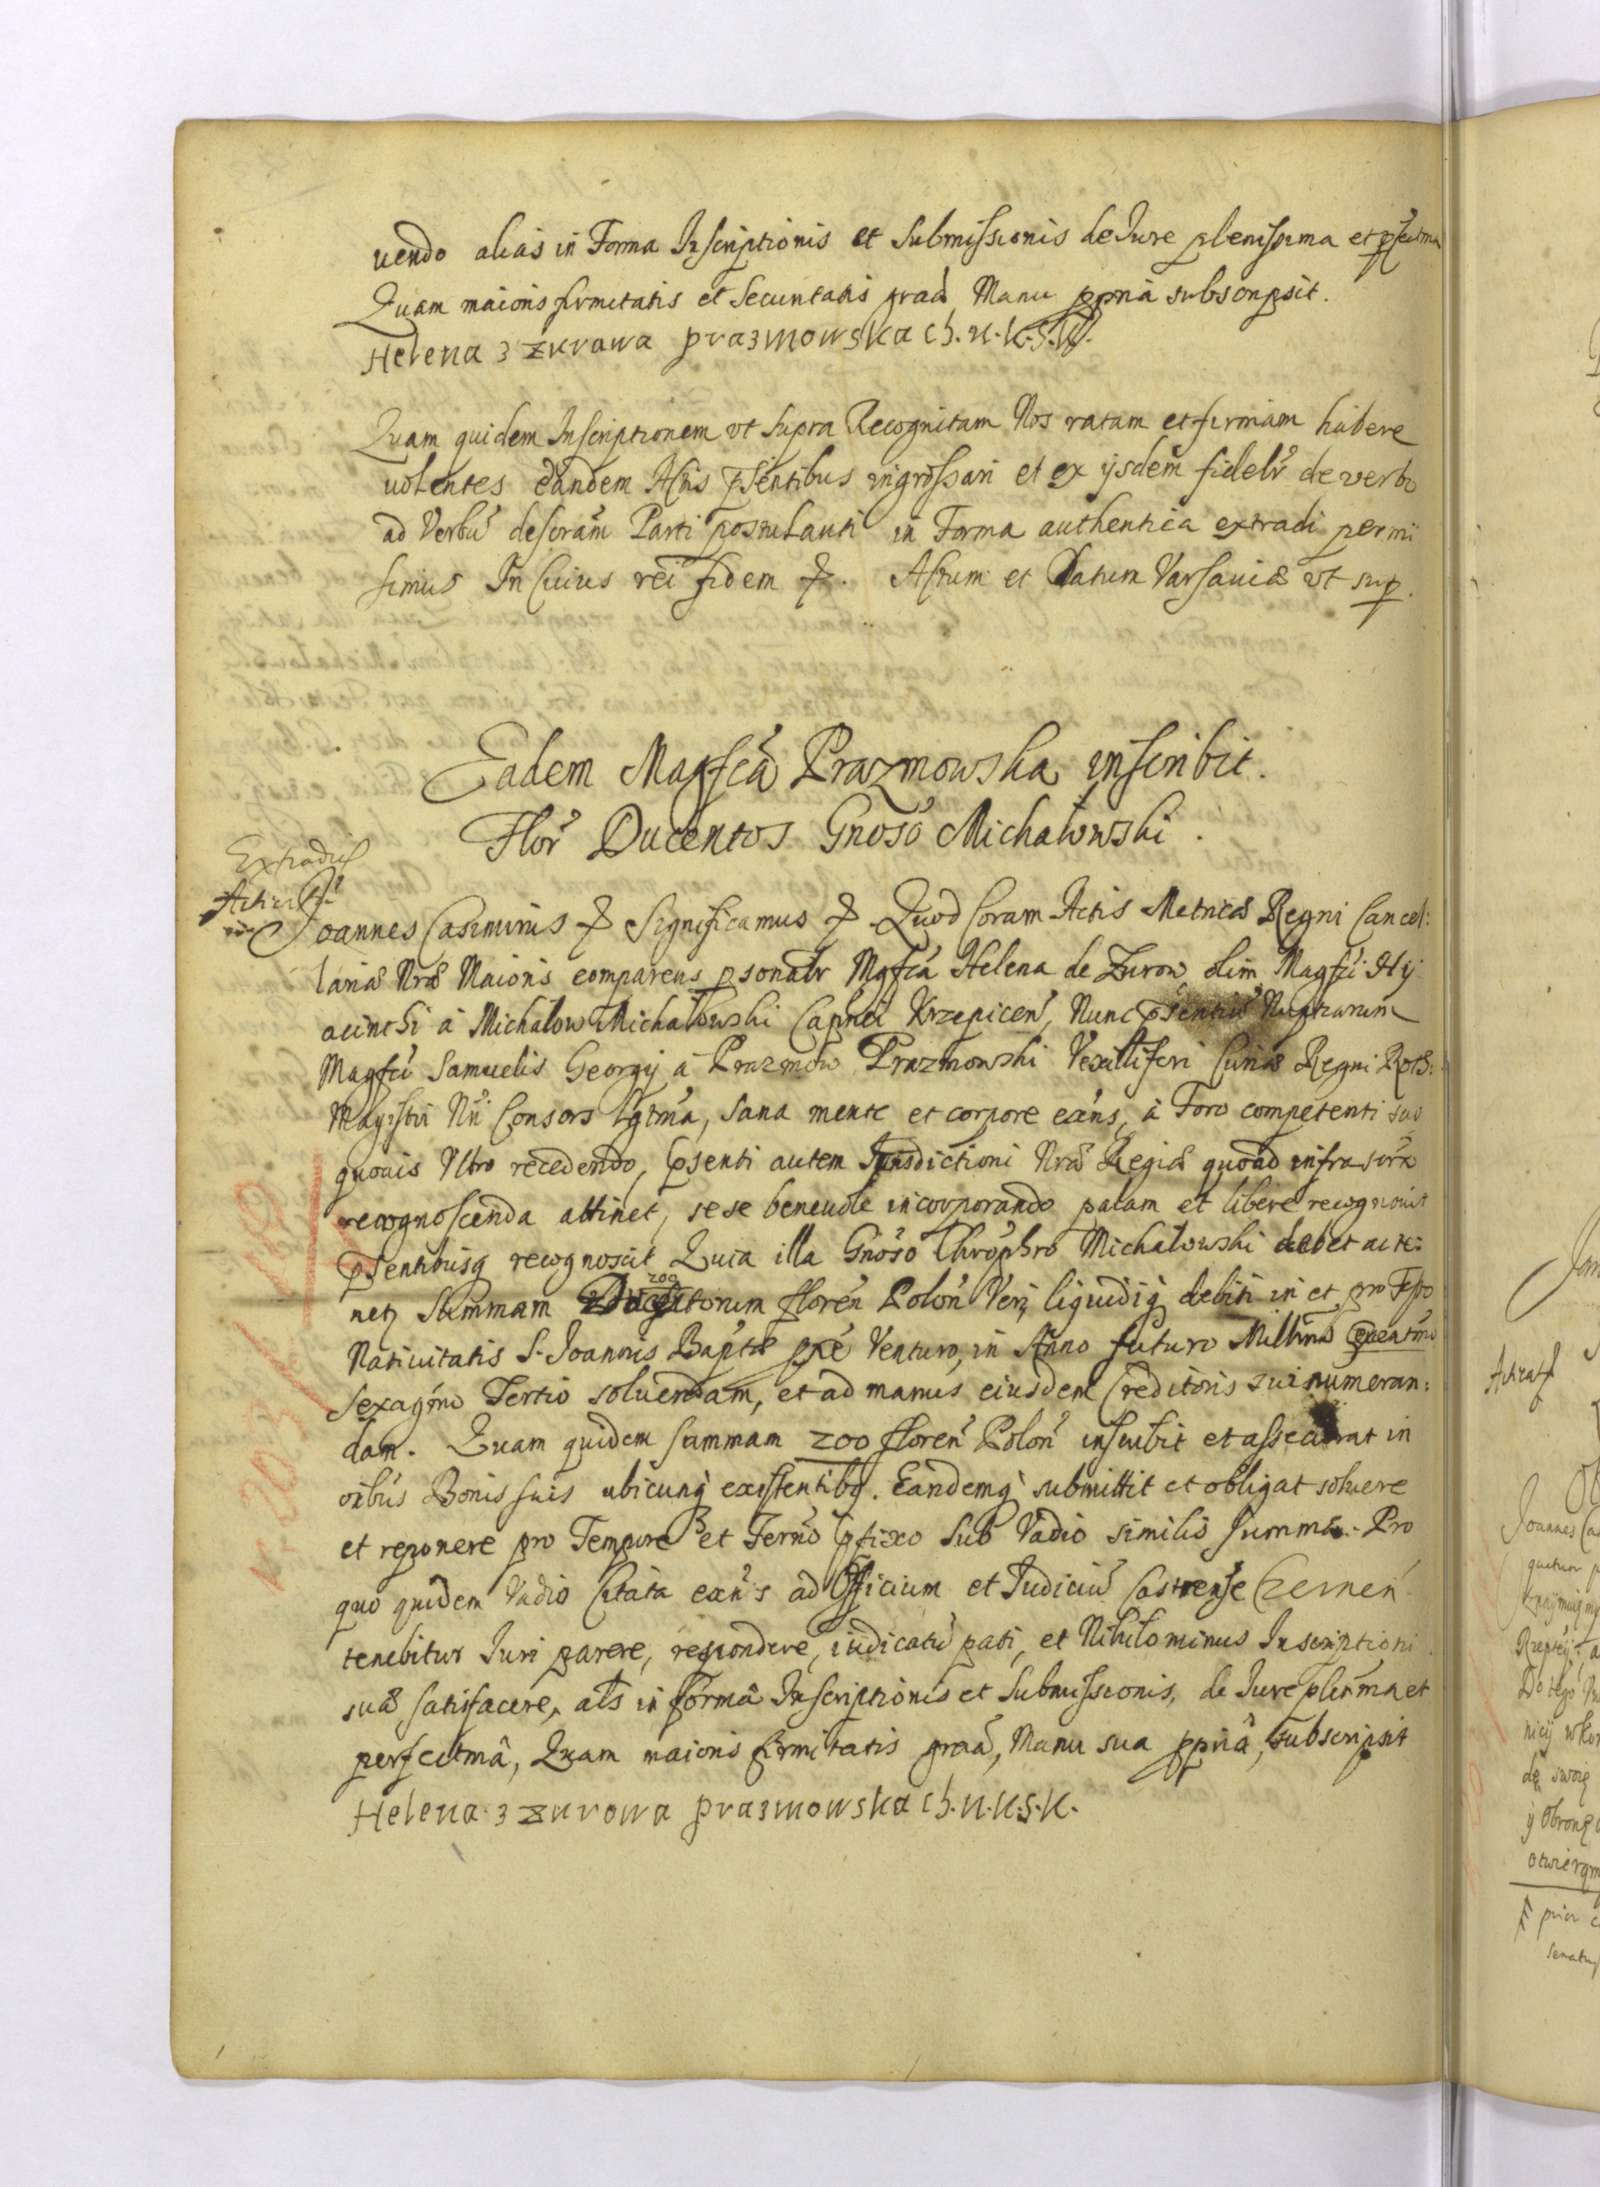 uendo alias in Forma Inscriptionis et Submissionis de Iure plenissima et pfectma
Quam maioris firmitatis et Securitatis graã Manu ppria subscripsit.
Helena z zurowa prazmowska Ch. N. K. S. K.
Quam quidem Inscriptionem vt Supra Recognitam Nos ratam et firmam habere
uolentes eandem Actis psentibus ingrossari et ex ijsdem fidelr de verbo
ad Verbũ descram Parti postulanti in Forma authentica extradi permi
simus In Cuius rei fidem &. Actum et Datum Varsauiæ vt sup.
Eadem Magfca Prazmowska inscribit.
Flor Ducentos Gnoso Michalowski.
Joannes Casimirus & Significamus & Quod Coram Actis Metricæ Regni Cancel:
lariæ Nræ Maioris comparens psonalr Mgfca Helena de Zurow, olim Magfci Hy
acinthi à Michalow Michalowski Capnei Krzepicen, Nunc psentiũ Nuptiarum
Magfci Samuelis Georgij à Prazmow Prazmowski Vexilliferi Curiæ Regni Roth:
Magistri Nri Consors lgtma, sana mente et corpore exns, à Foro competenti suo
quouis Vltro recedendo, psenti autem Iurisdictioni Nræ Regiæ quoad infra scra
recognoscenda attinet, sese beneuole incorporando palam et libere recognouit
psentibusq recognoscit Quia illa Gnoso Chrophro Michalowski debet ac te:
netq Summam 200 Ducentorum floren Polon Veri liquidiq debiti in et pro Fsto
Natiuitatis S. Joannis Baptæ pxe Venturo, in Anno futuro Millmo
Sexagmo Tertio soluendam, et ad manus eiusdem Creditoris sui numeran:
dam. Quam quidem summam 200 floren Polon inscribit et assecurat in
oibus Bonis suis ubicunq existentibq. Eandemq submittit et obligat soluere
et reponere pro Tempore et Termo pfixo Sub Vadio similis summæ. Pro
quo quidem Vadio Citata exns ad Officium et Iudiciũ Castrense Czernen
tenebitur Iuri parere, respondere, iudicatũ pati, et Nihilominus Inscriptioni
suæ satisfacere, als in forma Inscriptionis et Submissionis, de Iure plenma et
perfectmâ, Quam maioris firmitatis graã, Manu sua ppriâ, subscripsit
Helena z zurowa prazmowska Ch. N. K. S. K.